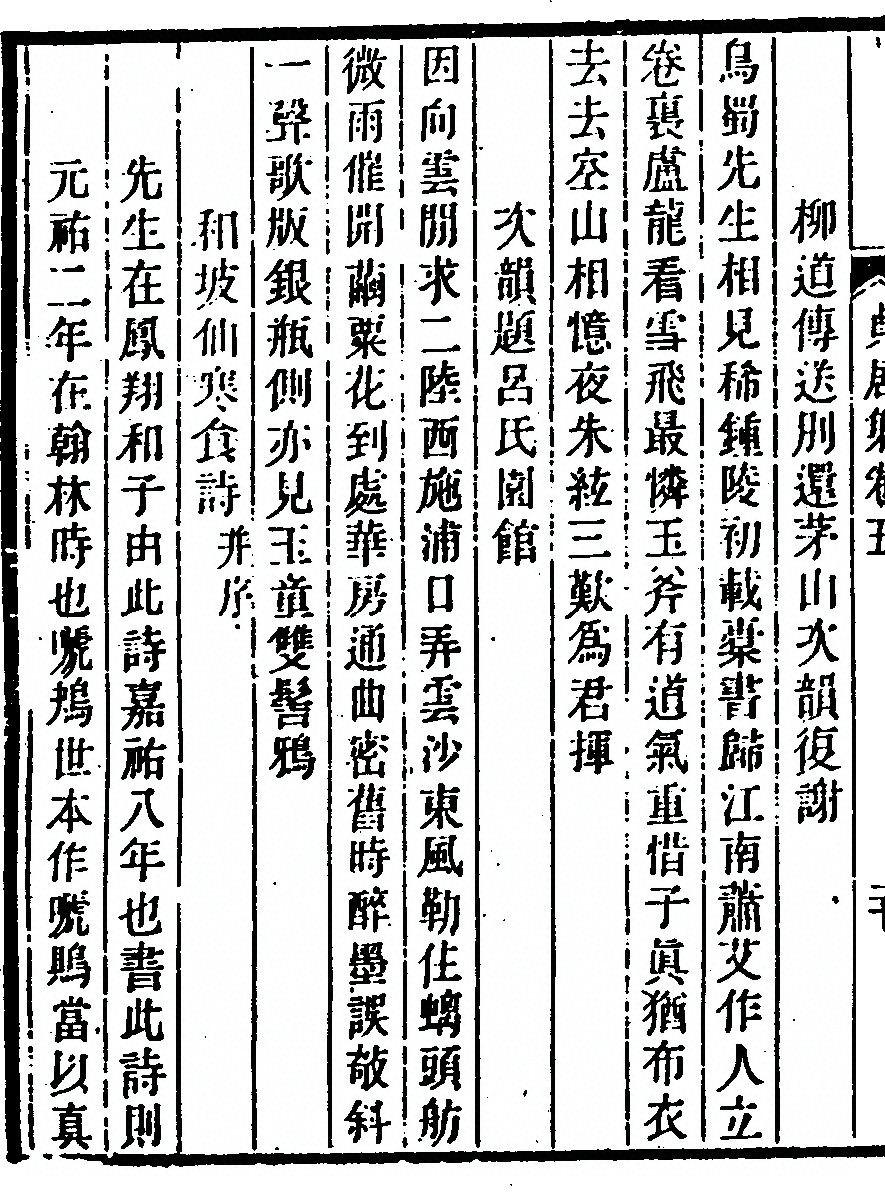 貞居集卷五
柳道傳送別還茅山次韻復謝
烏蜀先生相見稀鍾陵初載槖書歸江南蕭艾作人立
卷裏盧龍看雪飛最憐玉斧有道氣重惜子眞猶布衣
去去空山相憶夜朱絃三歎爲君揮
次韻題呂氏園館
因向雲間求二陸西施浦口弄雲沙東風勒住螭頭舫
微雨催開繭粟花到處華房通曲密舊時醉墨誤敧斜
一聲歌版銀瓶側亦見玉童雙髻鴉
和坡仙寒食詩并序
先生在鳳翔和子由此詩嘉祐八年也書此詩則
元祐二年在翰林時也世本作當以真